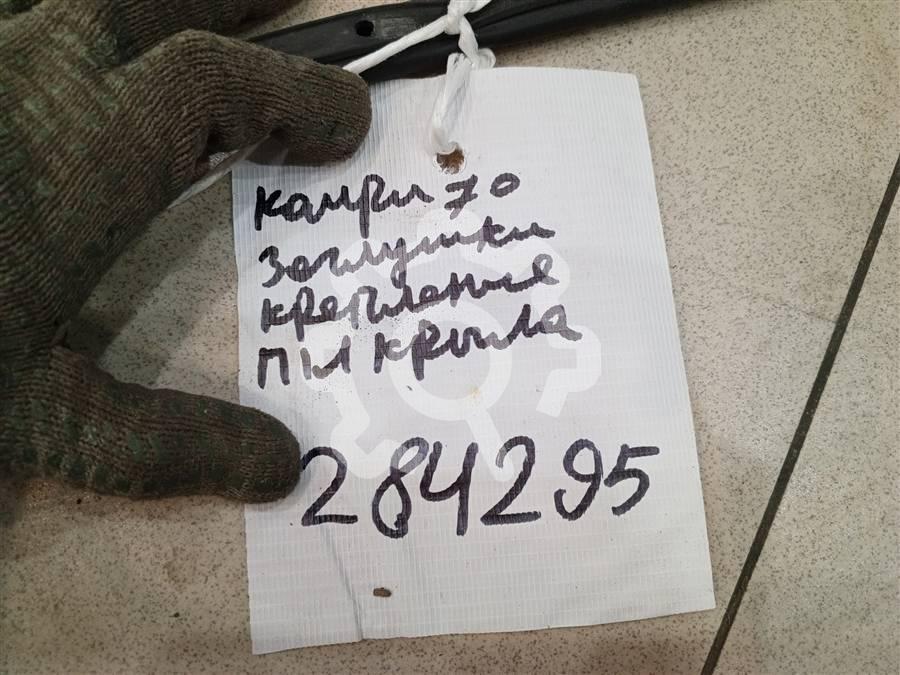 Камри 70
Заглушки
крепления
ПЛ крыла
284295